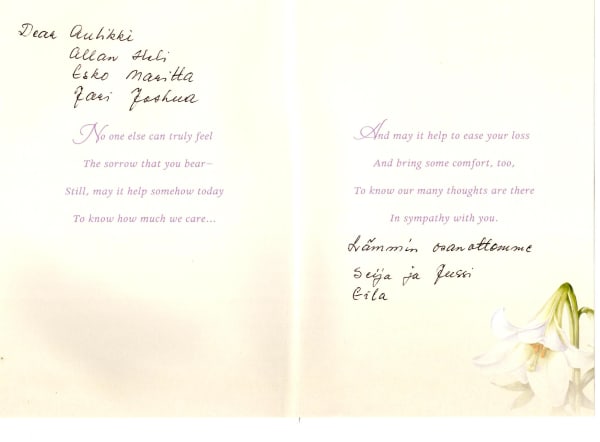 Dear Aulikki
Allan Heli
Esko Maritta
Jari Joshua
No one else can truly feel
The sorrow that you bear–
Still, may it help somehow today
To know how much we care...
And may it help to ease your loss
And bring some comfort, too,
To know our many thoughts are there
In sympathy with you.
Lämmin osanottomme
Seija ja Jussi
Eila